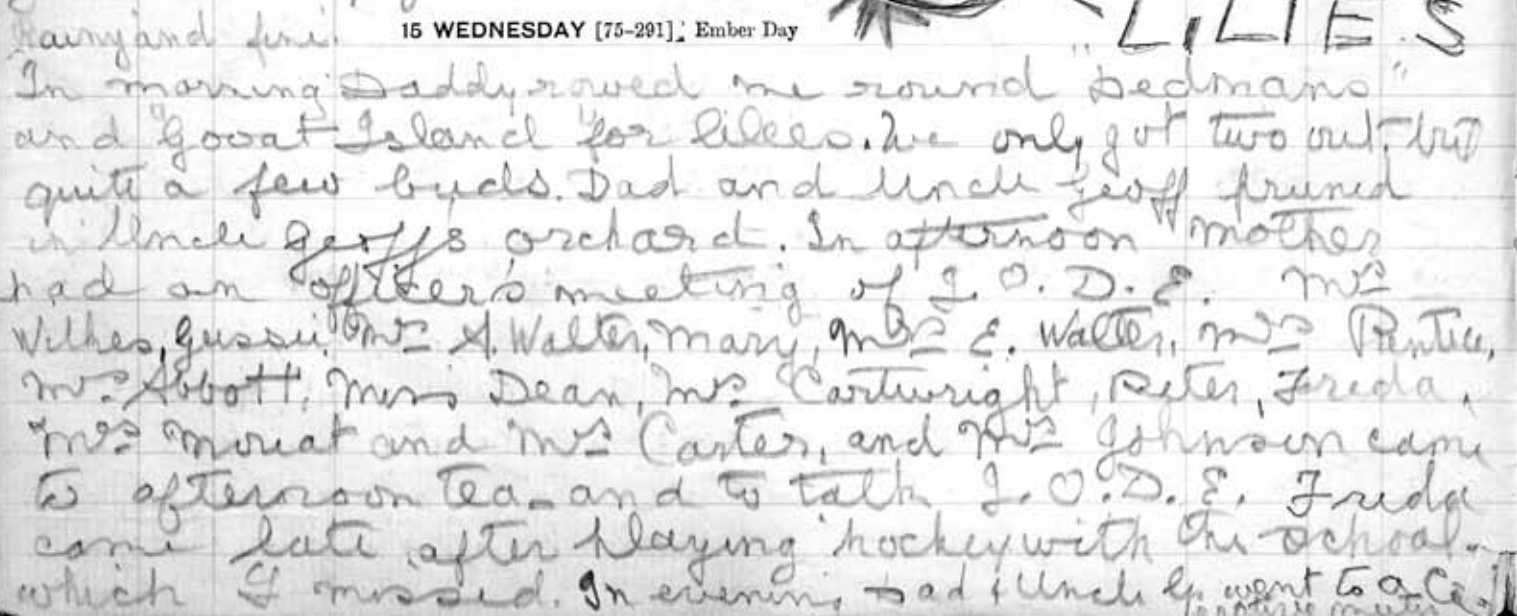 LILIES
Rainy and fine. 15 WEDNESDAY [75-291]. Ember Day
In morning Daddy rowed me round "Dedmans"
and "Goat Island" for lilies. We only got two out, but
quite a few buds. Dad and Uncle Geoff pruned
in Uncle Geoff's orchard. In afternoon mother
had an officer's meeting of I. O. D. E. Mrs
Wilkes, Gussie, Mrs A. Walter, Mary, Mrs E. Walter, Mrs
Mrs Abbott, Miss Dean, Mrs Cartwright, Peter, Freda,
Mrs Mouat and Mrs Carter, and Mrs Johnson came
to afternoon tea and to talk I. O. D. E. Freda
came late after playing hockey with the school.
which I missed. In evening Dad & Uncle G. went to a